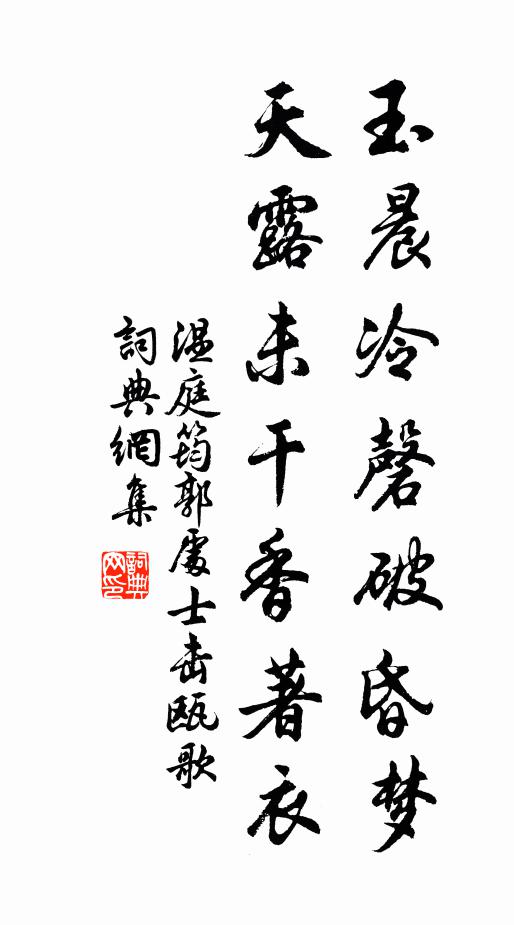 玉晨冷磬破昏梦
天露未干香著衣
温庭筠郭處士击瓯歌
詞典網集
詞典网印